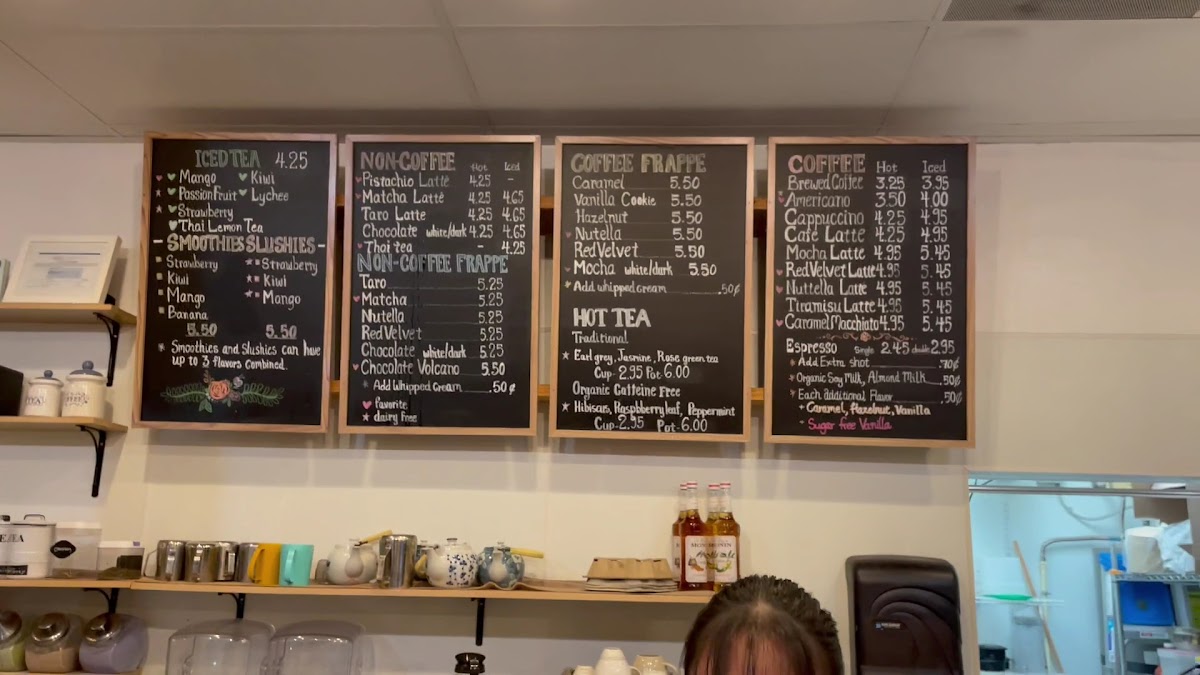 ICED TEA 4.25
Mango Kiwi
Passion Fruit Lychee
Strawberry
Thai Lemon Tea
- SMOOTHIES SLUSHIES -
Strawberry ** Strawberry
Kiwi ** Kiwi
Mango ** Mango
Banana
5.50 5.50
* Smoothies and Slushies can have
up to 3 flavors combined.
NON-COFFEE Hot Iced
♥ Pistachio Latte 4.25 -
♥ Matcha Latte 4.25 4.65
Taro Latte 4.25 4.65
Chocolate white/dark 4.25 4.65
♥ Thai tea - 4.25
NON-COFFEE FRAPPE
Taro 5.25
♥ Matcha 5.25
Nutella 5.25
Red Velvet 5.25
Chocolate white/dark 5.25
♥ Chocolate Volcano 5.50
* Add Whipped Cream .50¢
♥ favorite
* dairy free
COFFEE FRAPPE
Caramel 5.50
Vanilla Cookie 5.50
Hazelnut 5.50
♥ Nutella 5.50
Red Velvet 5.50
Mocha white/dark 5.50
Add whipped cream .50¢
HOT TEA
Traditional
* Earl grey, Jasmine, Rose green tea
Cup- 2.95 Pot 6.00
Organic Caffeine Free
* Hibiscus, Raspbberry leaf, Peppermint
Cup-2.95 Pot-6.00
COFFEE Hot Iced
Brewed Coffee 3.25 3.95
♥ Americano 3.50 4.00
Cappuccino 4.25 4.95
Cafe Latte 4.25 4.95
Mocha Latte 4.95 5.45
♥ Red Velvet Latte 4.95 5.45
♥ Nuttella Latte 4.95 5.45
Tiramisu Latte 4.95 5.45
♥ Caramel Macchiato 4.95 5.45
Espresso Single 2.45 double 2.95
* Add Extra shot .70¢
* Organic Soy Milk, Almond Milk .50¢
* Each additional Flavor .50¢
* Caramel, Hazelnut, Vanilla
* Sugar free Vanilla